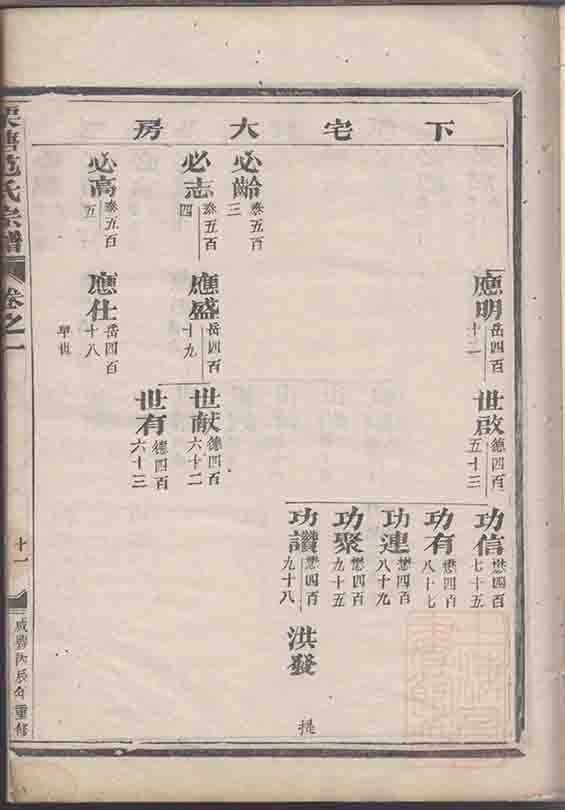 下宅大房
應明 岳四百十二
世啟 德四百五十三
功信 懋四百七十五
功有 懋四百八十七
功連 懋四百八十九
功聚 懋四百九十五
功讚 懋四百九十八
洪發 提
必齡 泰五百三
必志 泰五百四
應盛 岳四百十九
世献 德四百六十二
世有 德四百六十三
必高 泰五百五
應仕 岳四百十八 早世
范氏宗譜 卷之一 十一 咸豐丙辰年重修